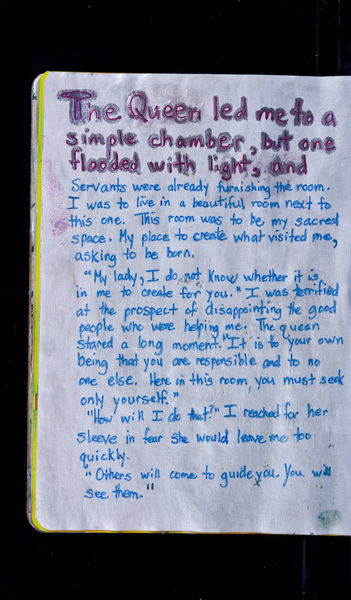 The Queen led me to a
simple chamber, but one
flooded with light, and
Servants were already furnishing the room.
I was to live in a beautiful room next to
this one. This room was to be my sacred
space. My place to create what visited me,
asking to be born.
"My lady, I do not know whether it is
in me to create for you." I was terrified
at the prospect of disappointing the good
people who were helping me. The queen
stared a long moment. "It is to your own
being that you are responsible and to no
one else. Here in this room you must seek
only yourself."
"How will I do that?" I reached for her
sleeve in fear she would leave me too
quickly.
"Others will come to guide you. You will
see them."